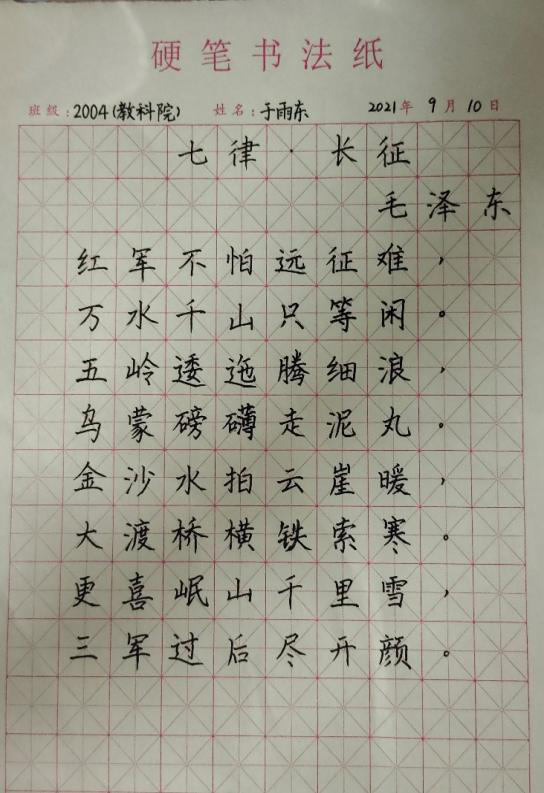 硬笔书法纸
班级：2004(教科院) 姓名：于雨东 2021年9月10日
七律·长征
毛泽东
红军不怕远征难，
万水千山只等闲。
五岭逶迤腾细浪，
乌蒙磅礴走泥丸。
金沙水拍云崖暖，
大渡桥横铁索寒。
更喜岷山千里雪，
三军过后尽开颜。